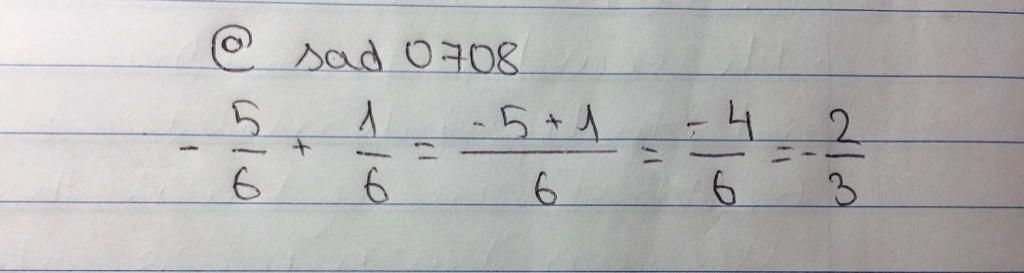 @ sad 0708
- 5/6 + 1/6 = -5+1/6 = -4/6 = - 2/3